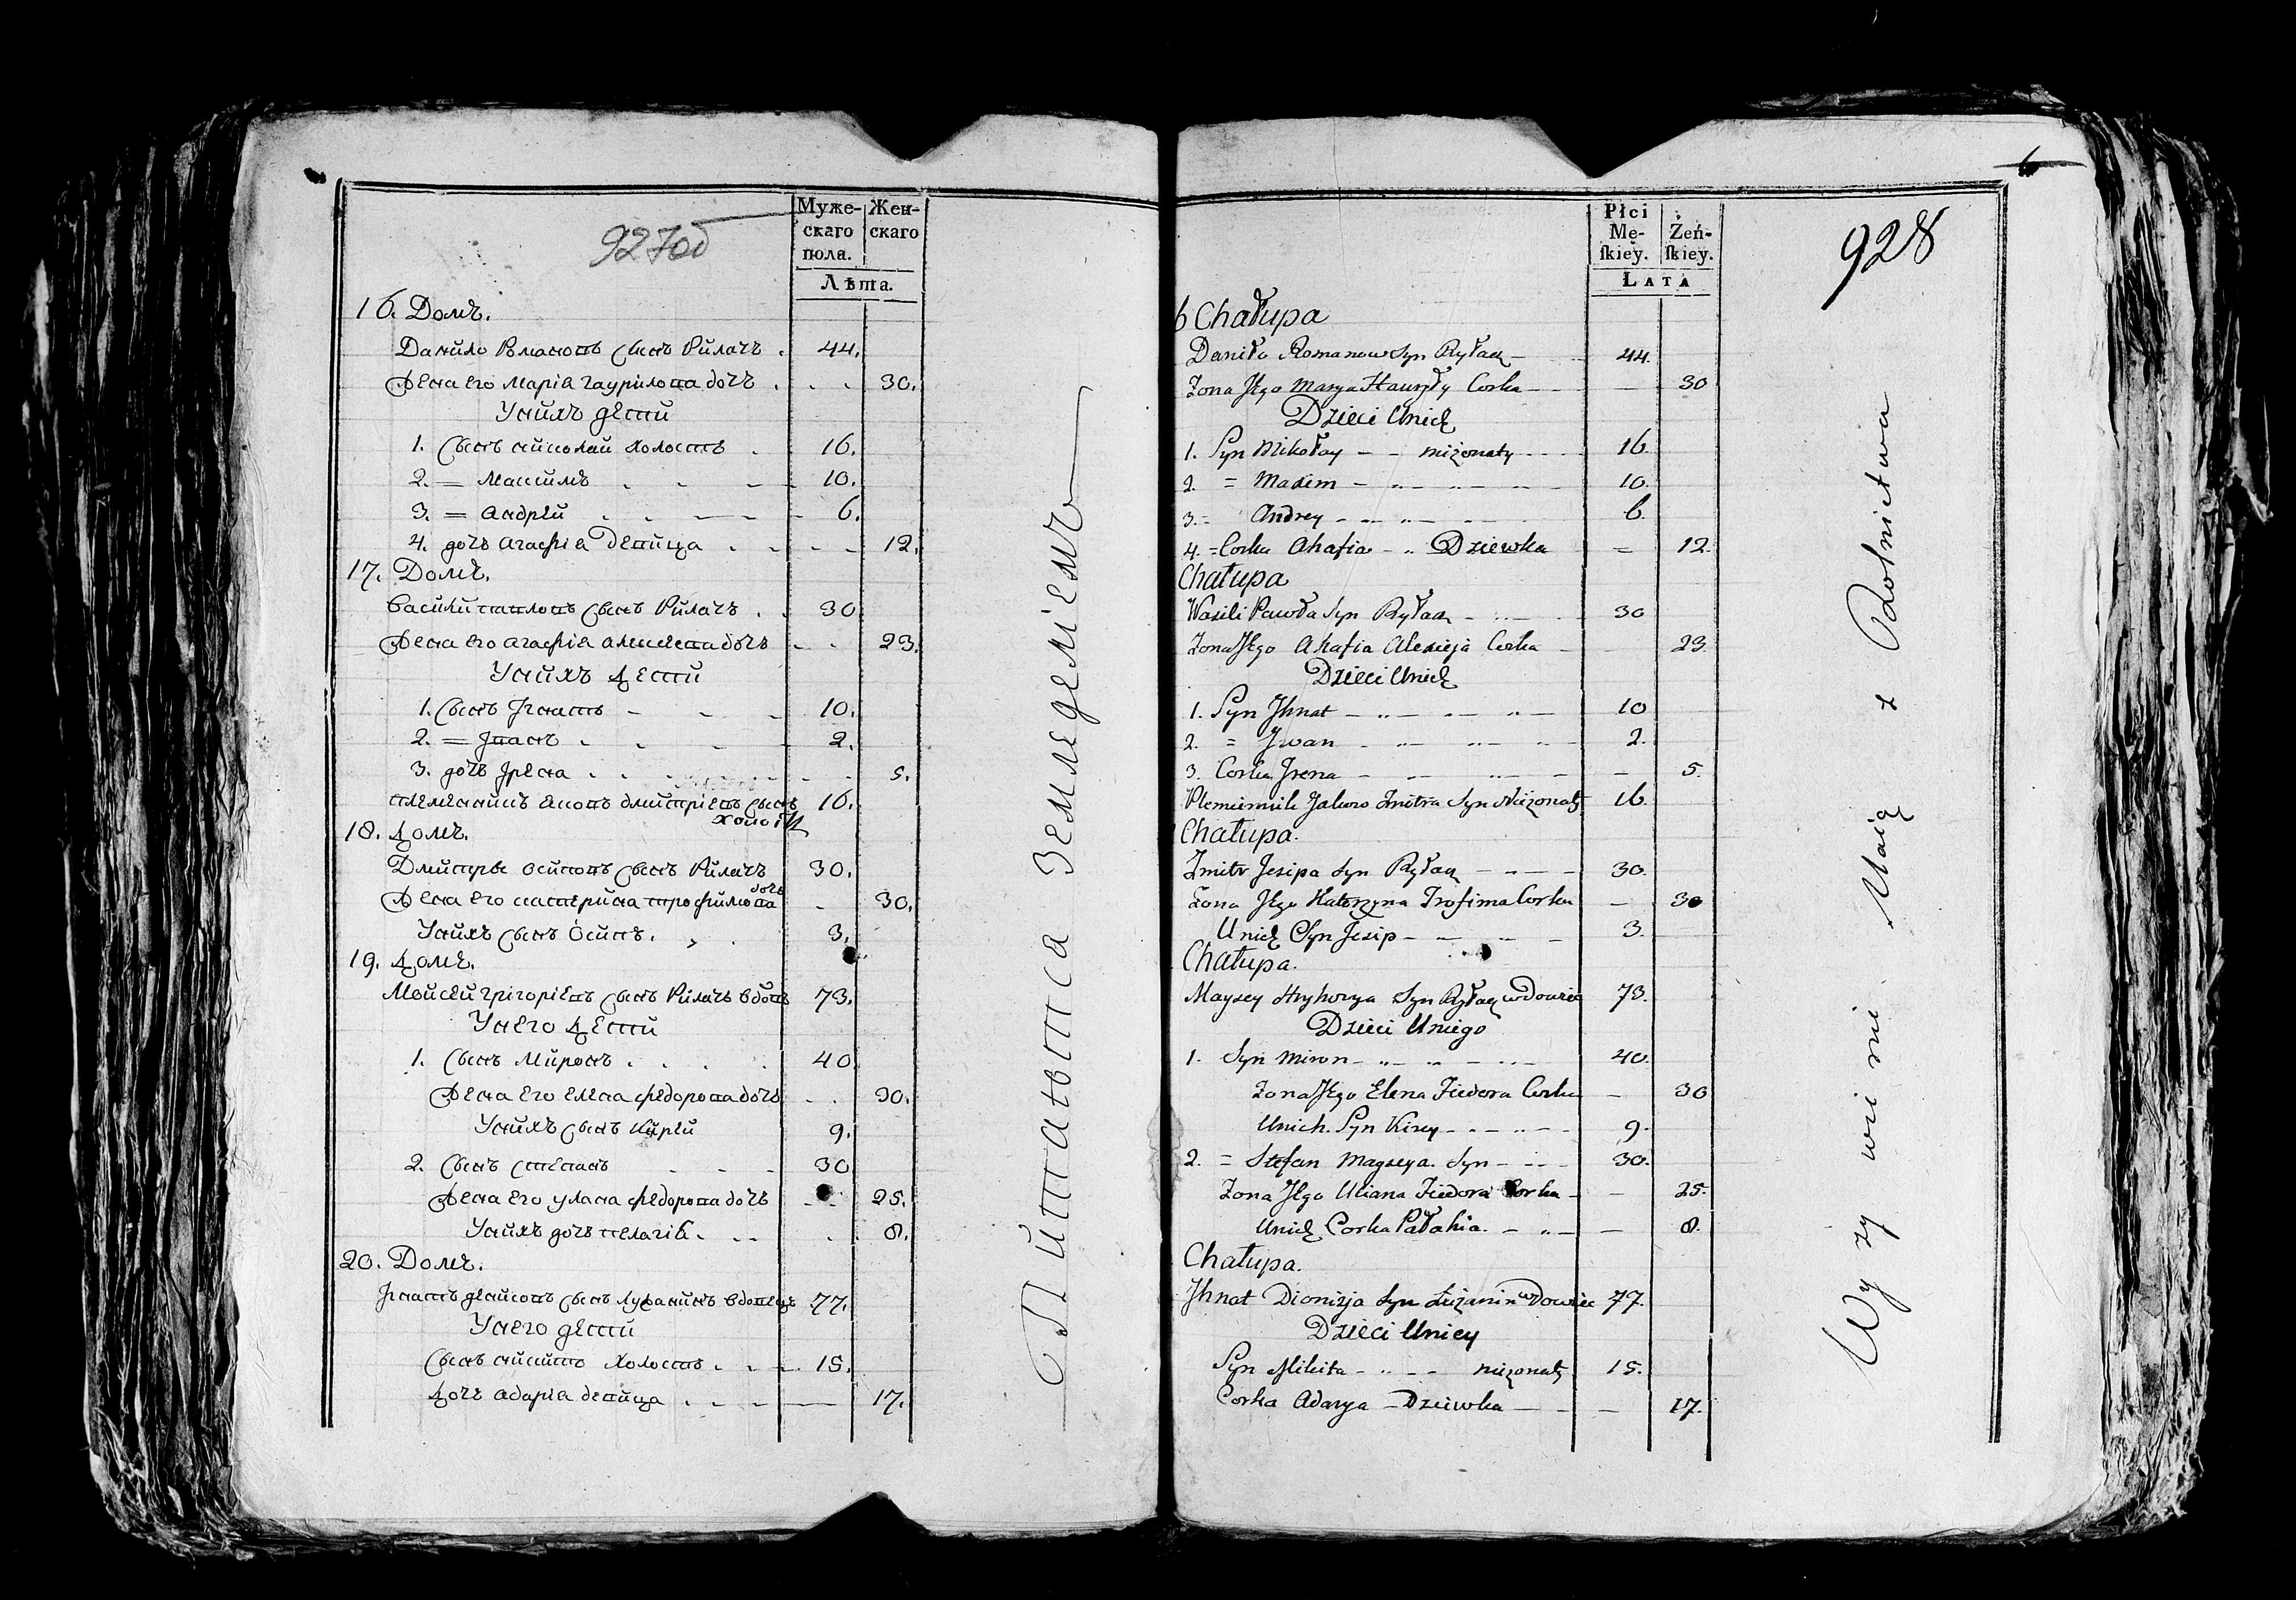 927об
Муже-
скаго
пола.
Жен-
скаго
Лѣта.
16. Домъ.
Данило Романовъ сынъ Рилачъ . 44.
Жена его Маріа Гаурилова дочъ . . . 30.
У нихъ дети
1. Сынъ Николай холостъ . 16.
2. = Максимъ . . - 10.
3. = Андрей . . - - 6.
4. дочъ Агафіа девица . . - - 12.
17. Домъ.
Васили Павловъ сынъ Рилачъ . . 30
Жена его Агафіа Алексева дочъ - - 23.
У нихъ дети
1. Сынъ Игнатъ - - - 10.
2. = Иванъ . . - - 2.
3. дочъ Ірена . . . - - 5.
племеникъ Яковъ Дмитріевъ сынъ 16.
холост
18. Домъ.
Дмитры Осиповъ сынъ Рилачъ 30.
Жена его Катерина Трофимова дочъ - 30.
У нихъ сынъ Осипъ. , . 3.
19. Домъ.
Мойсей Григоріевъ сынъ Рилачъ вдовъ 73.
У него дети
1. Сынъ Миронъ . . . . 40
Жена его Елена Федорова дочъ - . 30.
У нихъ сынъ Кирей 9.
2. Сынъ Степанъ - - - 30
Жена его Уляна Федорова дочъ - - 25.
У нихъ дочъ Пелагіа . . . . . 8.
20. Домъ.
Игнатъ Денисовъ сынъ Лужанинъ вдовецъ 77.
У него дети
Сынъ Никита холостъ . . - 15.
Дочъ Адаріа девица . . - - 17.
Питаются Земледелиемъ
928
Płci
Mę-
ſkiey.
Żeń-
ſkiey.
Lata
6 Chałupa
Daniło Romanow Syn Ryłacz - 44.
Zona Jego Marya Hauryły Corka - - 30
Dzieci Unich
1. Syn Mikołay - - nieżonaty - - 16.
2. = Maxim - - - - 10.
3. = Andrey - - - - 6.
4. = Corka Ahafia - Dziewka = 12.
Chałupa
Wasili Pawła Syn Ryłacz - - 30
Zona Jego Ahafia Alexieja Corka - 23.
Dzieci Unich
1. Syn Jhnat - - - - 10
2. = Jwan - - - - 2.
3. Corka Jrena - - - - 5.
Plemiennik Jakow Zmitra Syn Nieżonaty 16.
Chałupa.
Zmitr Jesipa Syn Ryłacz - - - 30.
Zona Jego Katerzyna Trofima Corka - 30
Unich Syn Jesip - - - 3.
Chałupa.
Maysey Hryhorya Syn Ryłacz wdowiec 73.
Dzieci Uniego
1. Syn Miron - - - - 40.
Zona Jego Elena Fiedora Corka - 30
Unich. Syn Kirey - - - - 9.
2. = Stefan Mayseya. Syn - - 30.
Zona Jego Uliana Fiedora Corka - - 25.
Unich Corka Pałahia. - - - 8.
Chałupa.
Jhnat Dionizja Syn Łużanin wdowiec 77.
Dzieci Uniey
Syn Mikita - - - nieżonaty 15.
Corka Adarya - Dziewka - - - 17.
Wyzywienie Maią z Rolnictwa